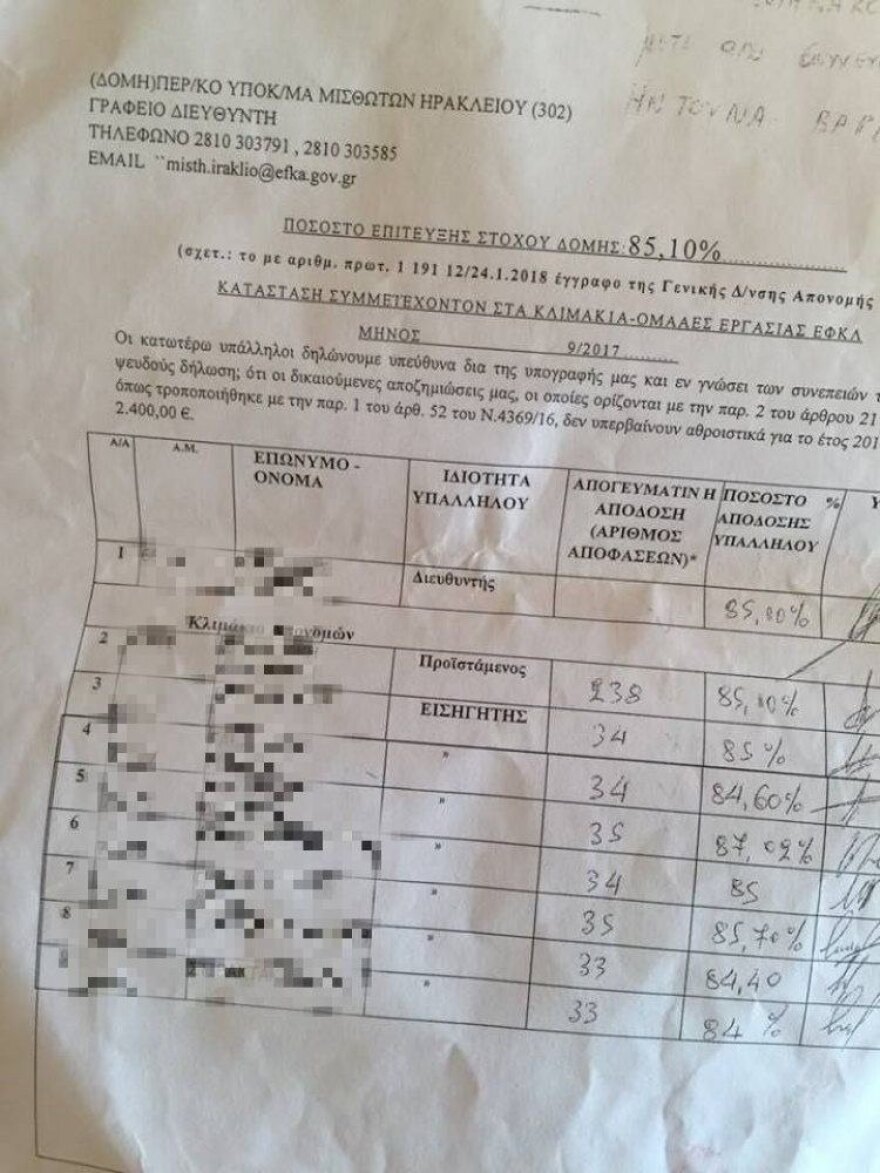 ΜΕΤΑ ΑΠΟ
ΗΝ ΤΟΥ ΝΑ
(ΔΟΜΗ)ΠΕΡ/ΚΟ ΥΠΟΚ/ΜΑ ΜΙΣΘΩΤΩΝ ΗΡΑΚΛΕΙΟΥ (302)
ΓΡΑΦΕΙΟ ΔΙΕΥΘΥΝΤΗ
ΤΗΛΕΦΩΝΟ 2810 303791 , 2810 303585
EMAIL ``misth.iraklio@efka.gov.gr
ΠΟΣΟΣΤΟ ΕΠΙΤΕΥΞΗΣ ΣΤΟΧΟΥ ΔΟΜΗΣ: 85,10%
(σχετ.: το με αριθμ. πρωτ. 1 191 12/24.1.2018 έγγραφο της Γενικής Δ/νσης Απονομής
ΚΑΤΑΣΤΑΣΗ ΣΥΜΜΕΤΕΧΟΝΤΩΝ ΣΤΑ ΚΛΙΜΑΚΙΑ-ΟΜΑΔΕΣ ΕΡΓΑΣΙΑΣ ΕΦΚΑ
ΜΗΝΟΣ 9/2017
Οι κατωτέρω υπάλληλοι δηλώνουμε υπεύθυνα δια της υπογραφής μας και εν γνώσει των συνεπειών
ψευδούς δήλωση; ότι οι δικαιούμενες αποζημιώσεις μας, οι οποίες ορίζονται με την παρ. 2 του άρθρου 21
όπως τροποποιήθηκε με την παρ. 1 του άρθ. 52 του Ν.4369/16, δεν υπερβαίνουν αθροιστικά για το έτος 201
2.400,00 €.
Α/Α Α.Μ. ΕΠΩΝΥΜΟ - ΙΔΙΟΤΗΤΑ ΑΠΟΓΕΥΜΑΤΙΝ Η ΠΟΣΟΣΤΟ %
ΟΝΟΜΑ ΥΠΑΛΛΗΛΟΥ ΑΠΟΔΟΣΗ ΑΠΟΔΟΣΗΣ
(ΑΡΙΘΜΟΣ ΥΠΑΛΛΗΛΟΥ
ΑΠΟΦΑΣΕΩΝ)*
1 Διευθυντής 85,10%
2 Προϊστάμενος 238 85,10%
3 ΕΙΣΗΓΗΤΗΣ 34 85%
4 " 34 84,60%
5 " 35 87,02%
6 " 34 85
7 " 35 85,70%
8 " 33 84,40
" 33 84 %